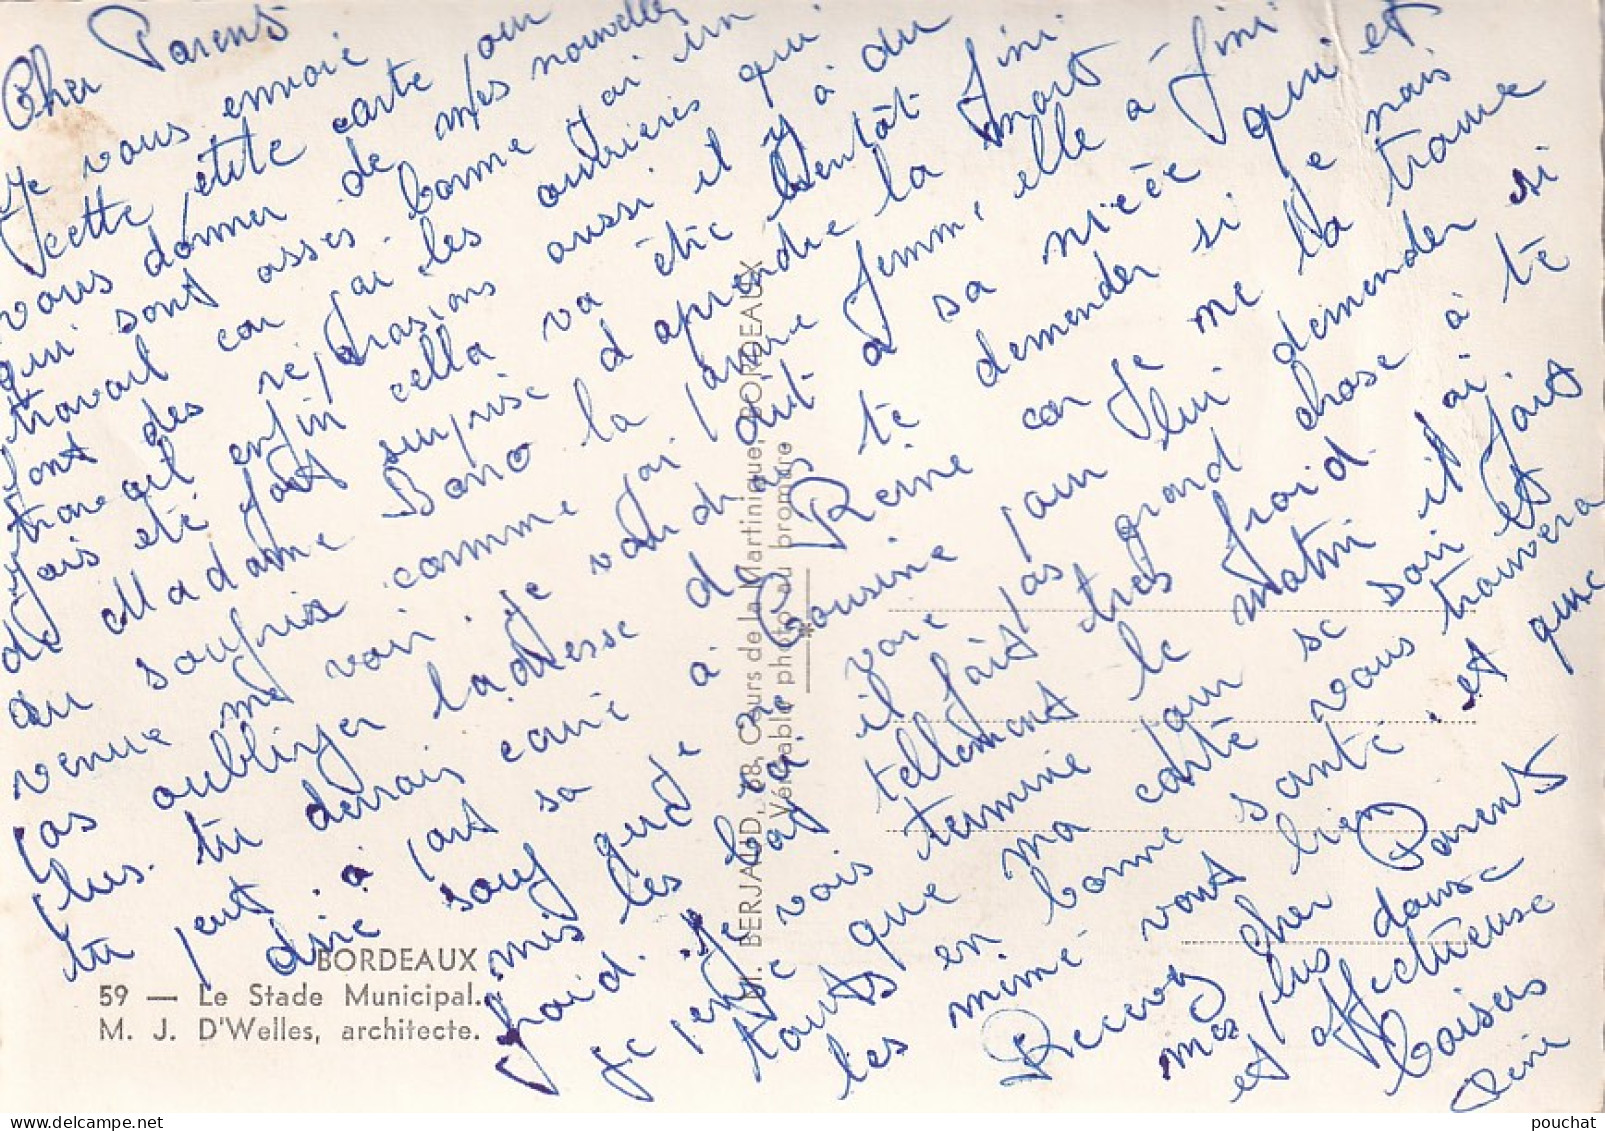 Cher Parents
Je vous envoie
cette petite carte pour
vous donner de mes nouvelles
qui sont asses bonne j'ai un
travail car j'ai les ouvrieres qui
font des réparasions aussi il y à du
travail enfin cella va étre bientôt fini
j'ais été fort surprise d'aprendre la mort
de Madame Bono la pauvre femme, elle a fini
du soufrire comme j'ai dit a sa niéce qui et
venue me voir. je voudrais te demender si je nais
pas oublier ladresse de Reine car je me la trouve
plus. tu devrais écrire à Cousine pour lui demender si
tu peut. a part sa je vore pas grand chose à te
dire souf que il fait très froid.
mis les bas tellement le matin il ai
froid. Je vais termine pour se soir il fait
je pense que ma carte vous trouvera
touts en bonne santé. et que
les mimé vont bien
Recevez cher Parents
mes plus douse
et affectueuse
baisers
Reine
BORDEAUX
59 — Le Stade Municipal.
M. J. D'Welles, architecte.
M. BERJAUD, 68, Cours de la Martinique, BORDEAUX
Véritable photo au bromure